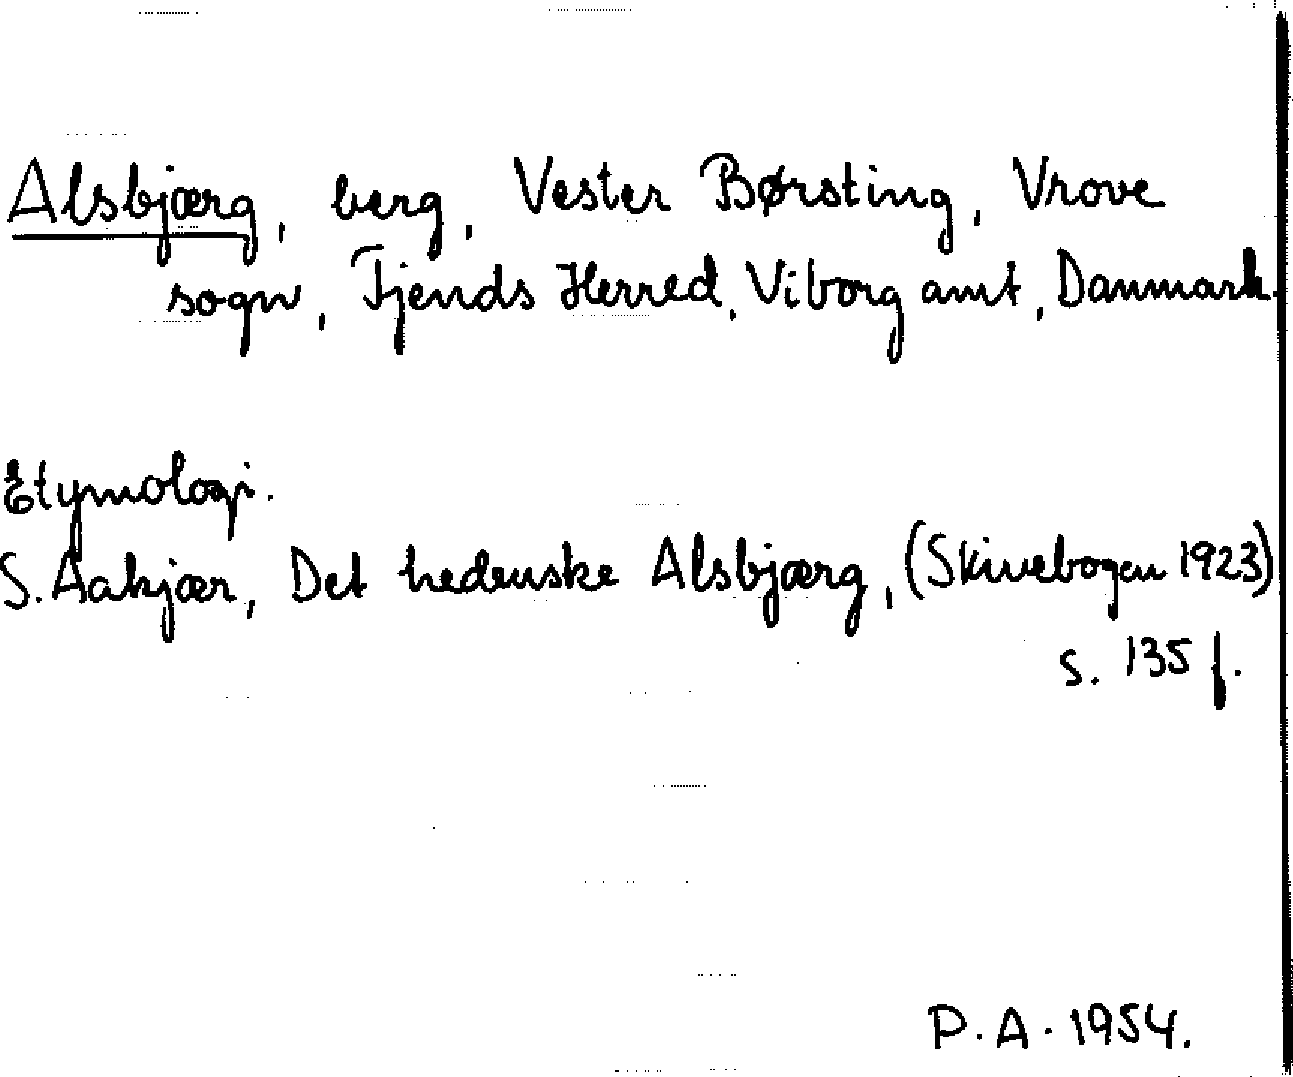 Alsbjærg, berg, Vester Børsting, Vrove
sogn, Fjends Herred, Viborg amt, Danmark.
Etymologi.
S. Aakjær, Det hedenske Alsbjærg, (Skivebogen 1923)
s. 135 f.
P. A. 1954.